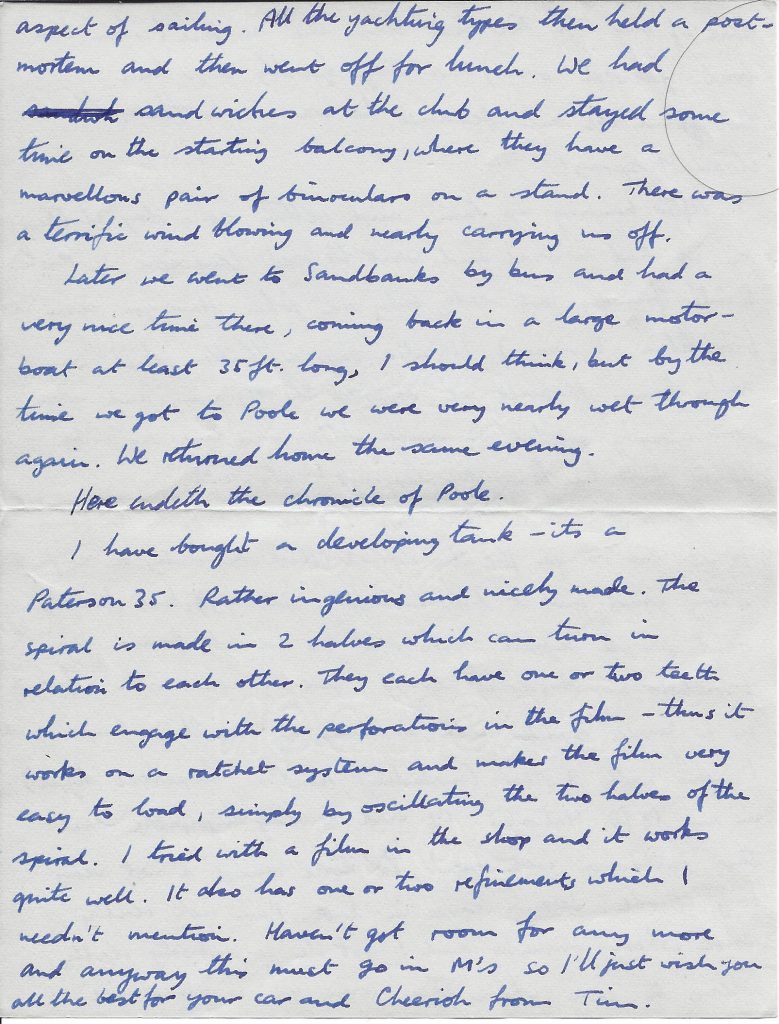 aspect of sailing. All the yachting types then held a post-
mortem and then went off for lunch. We had
sandwiches at the club and stayed some
time on the starting balcony, where they have a
marvellous pair of binoculars on a stand. There was
a terrific wind blowing and nearly carrying us off.
Later we went to Sandbanks by bus and had a
very nice time there, coming back in a large motor-
boat at least 35ft. long, I should think, but by the
time we got to Poole we were very nearly wet through
again. We returned home the same evening.
Here endeth the chronicle of Poole.
I have bought a developing tank - its a
Paterson 35. Rather ingenious and nicely made. The
spiral is made in 2 halves which can turn in
relation to each other. They each have one or two teeth
which engage with the perforations in the film - thus it
works on a ratchet system and makes the film very
easy to load, simply by oscillating the two halves of the
spiral. I tried with a film in the shop and it works
quite well. It also has one or two refinements which I
needn't mention. Haven't got room for any more
and anyway this must go in M's so I'll just wish you
all the best for your car and Cheerioh from Tim.